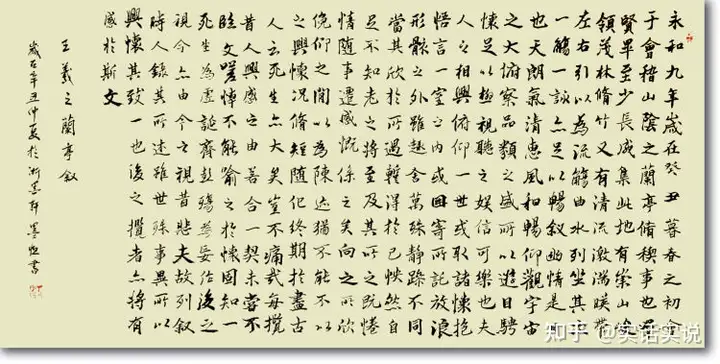 永和九年歲在癸丑暮春之初會
于會稽山陰之蘭亭脩稧事也羣
賢畢至少長咸集此地有崇山峻
領茂林脩竹又有清流激湍暎帶
左右引以為流觴曲水列坐其次
一觴一詠亦足以暢敘幽情是日
也天朗氣清惠風和暢仰觀宇宙
之大俯察品類之盛所以遊目騁
懷足以極視聽之娛信可樂也夫
人之相與俯仰一世或取諸懷抱
悟言一室之內或因寄所託放浪
形骸之外雖趣舍萬殊靜躁不同
當其欣於所遇暫得於己怏然自
足不知老之將至及其所之既惓
情隨事遷感慨係之矣向之所欣
俛仰之間以為陳迹猶不能不以
之興懷況脩短隨化終期於盡古
人云死生亦大矣豈不痛哉每攬
昔人興感之由若合一契未嘗不
臨文嗟悼不能喻之於懷固知一
死生為虛誕齊彭殤為妄作後之
視今亦由今之視昔悲夫故列敘
時人錄其所述雖世殊事異所以
興懷其致一也後之攬者亦將有
感於斯文
王羲之蘭亭敘
歲在辛丑仲夏於浙墨軒墨書
知乎 @实话实说